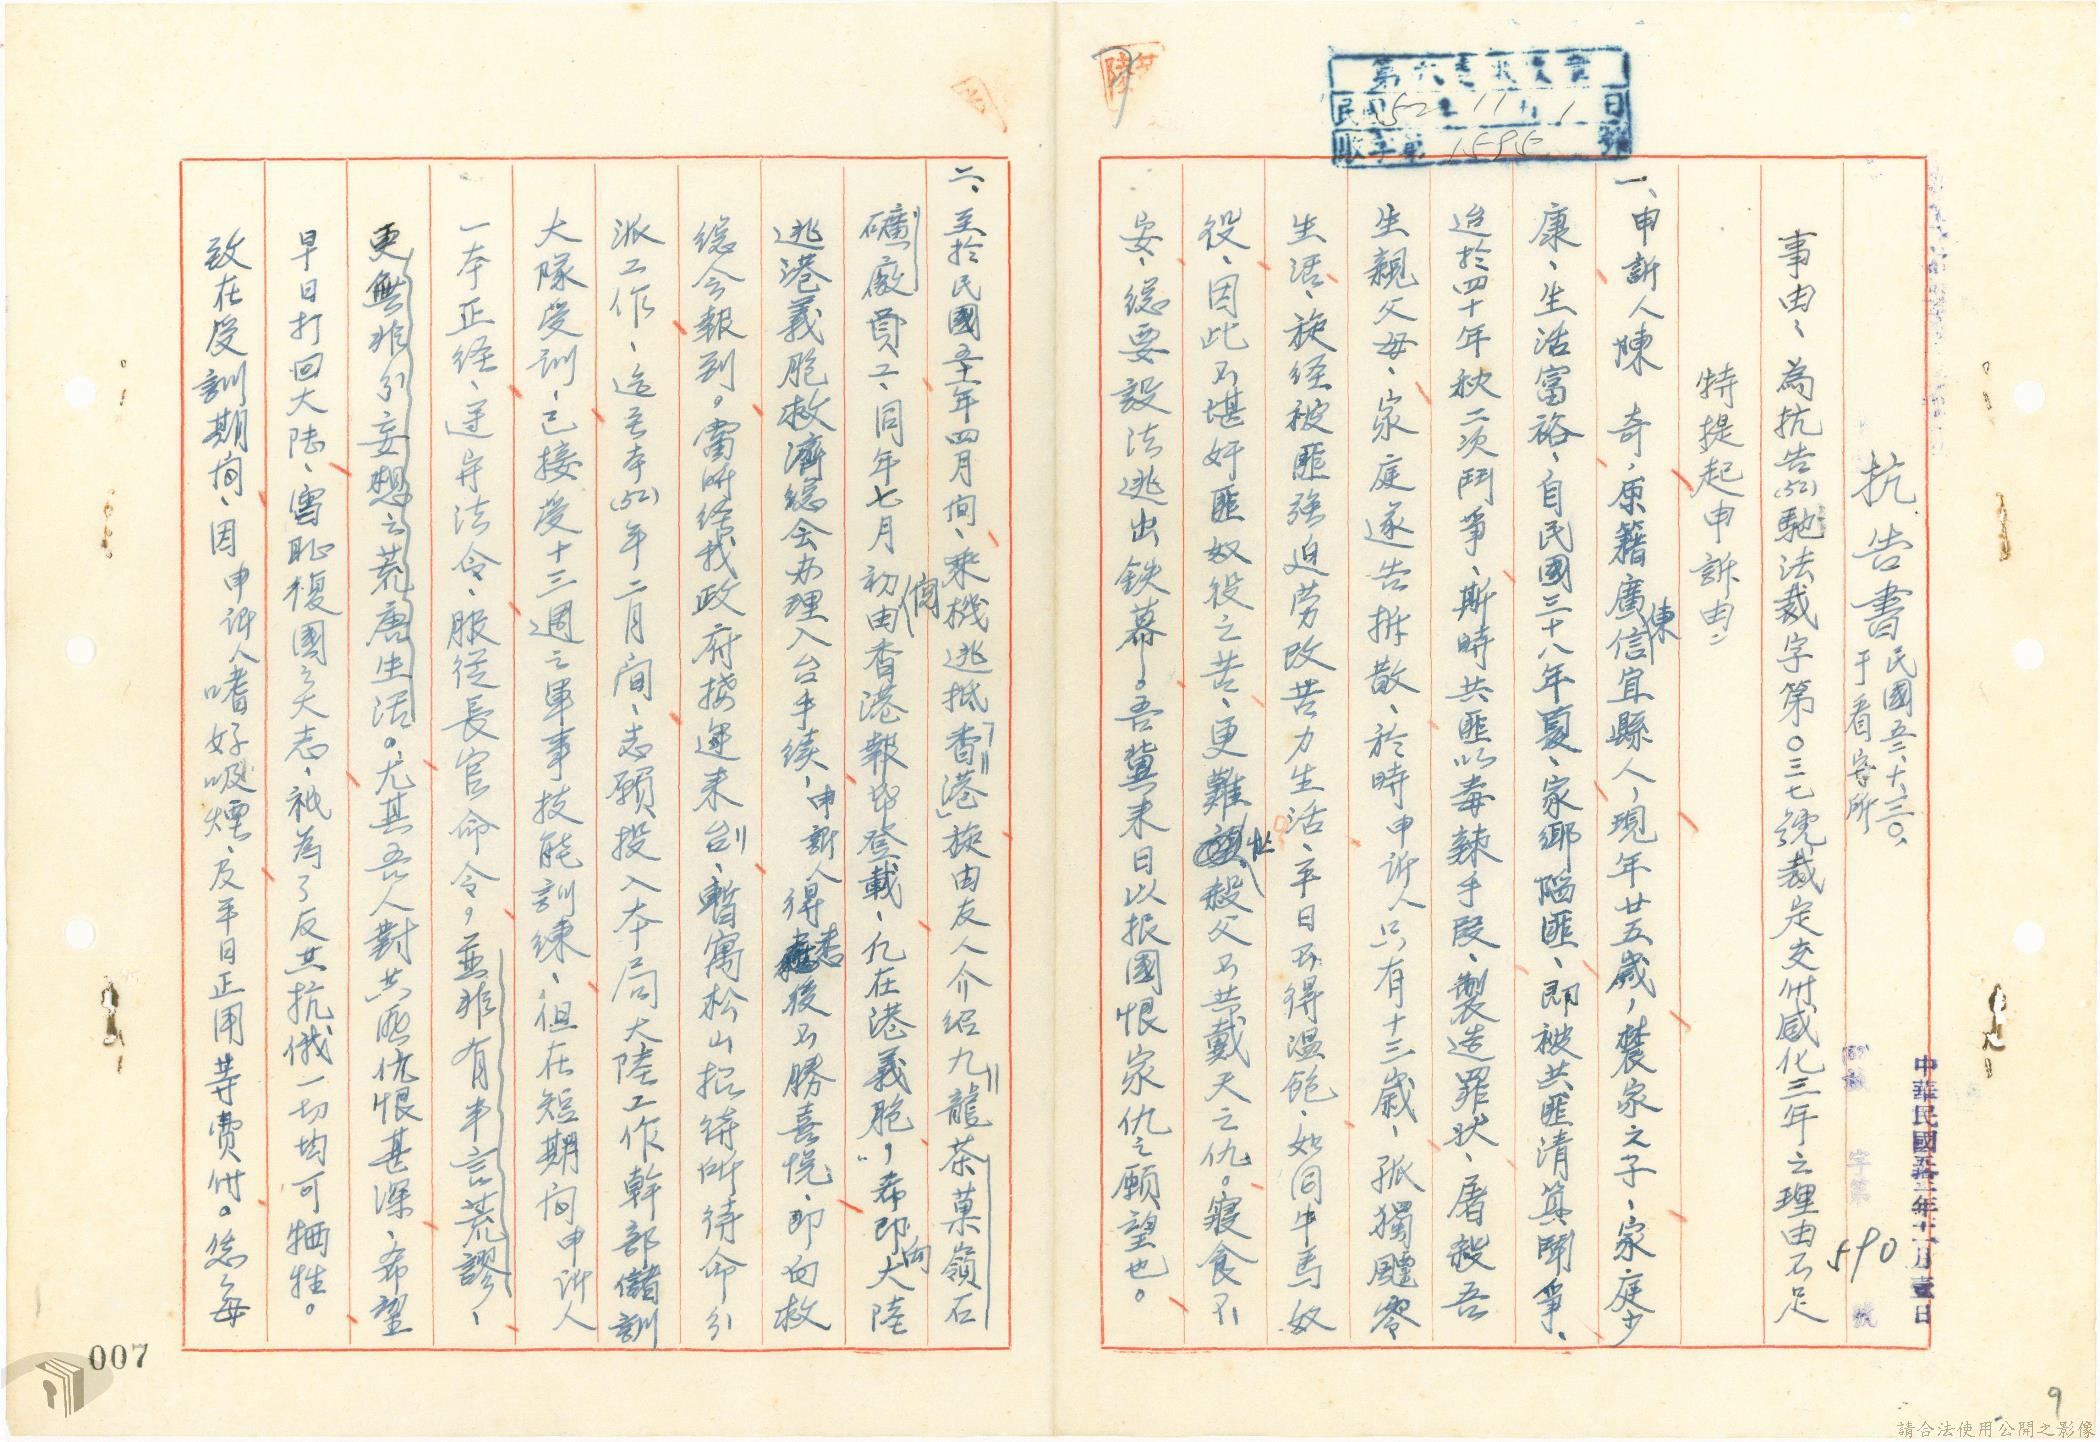 抗告書 民國五二、十、三〇、
于看守所
事由、為抗告(52)馳法裁字第〇三七號裁定交付感化三年之理由不足
特提起申訴由、
一、申訴人陳 奇,原籍廣東信宜縣人,現年廿五歲,農家之子、家庭少
康、生活富裕、自民國三十八年夏、家鄉陷匪、即被共匪清算鬪爭、
迨於四十年秋二次鬥爭、斯時共匪以毒辣手段、製造罪狀、屠殺吾
生親父母、家庭遂告拆散、於時申訴人只有十三歲、孤獨飄零
生活、旋经被匪強迫勞改苦力生活、平日不得溫飽、如同牛馬奴
役、因此不堪奸匪奴役之苦、更難忘殺父不共戴天之仇。寢食不
安、總要設法逃出鉄幕。吾冀来日以报國恨家仇之願望也。
二、至於民國五十一年四月间、乘機逃抵「香港」旋由友人介紹九龍茶菓嶺石
礦廠買工、同年七月初间由香港報紙登載、凡在港義胞,希即向大陸
逃港義胞救濟總会办理入台手续、申訴人得悉後不勝喜悅、即向救
總会報到。當時经我政府接運来台、暫寓松山招待所待命分
派工作、迄至本(52)年二月间、志願投入本局大陸工作幹部儲訓
大隊受訓、已接受十三週之軍事技能訓練、但在短期间申訴人
一本正经、遵守法令、服從長官命令,並非有半言荒謬、
更無非分妄想之荒唐生活。尤其吾人對共匪仇恨甚深、希望
早日打回大陸、雪恥復國之大志、祇為了反共抗俄一切均可牺牲。
致在受訓期间、因申訴人嗜好吸煙、及平日正用等費用。総之每
第六
民國52年11月1日
收字第1595號
中華民國五十二年十一月壹日
字第590號
007
9
請合法使用公開之影像